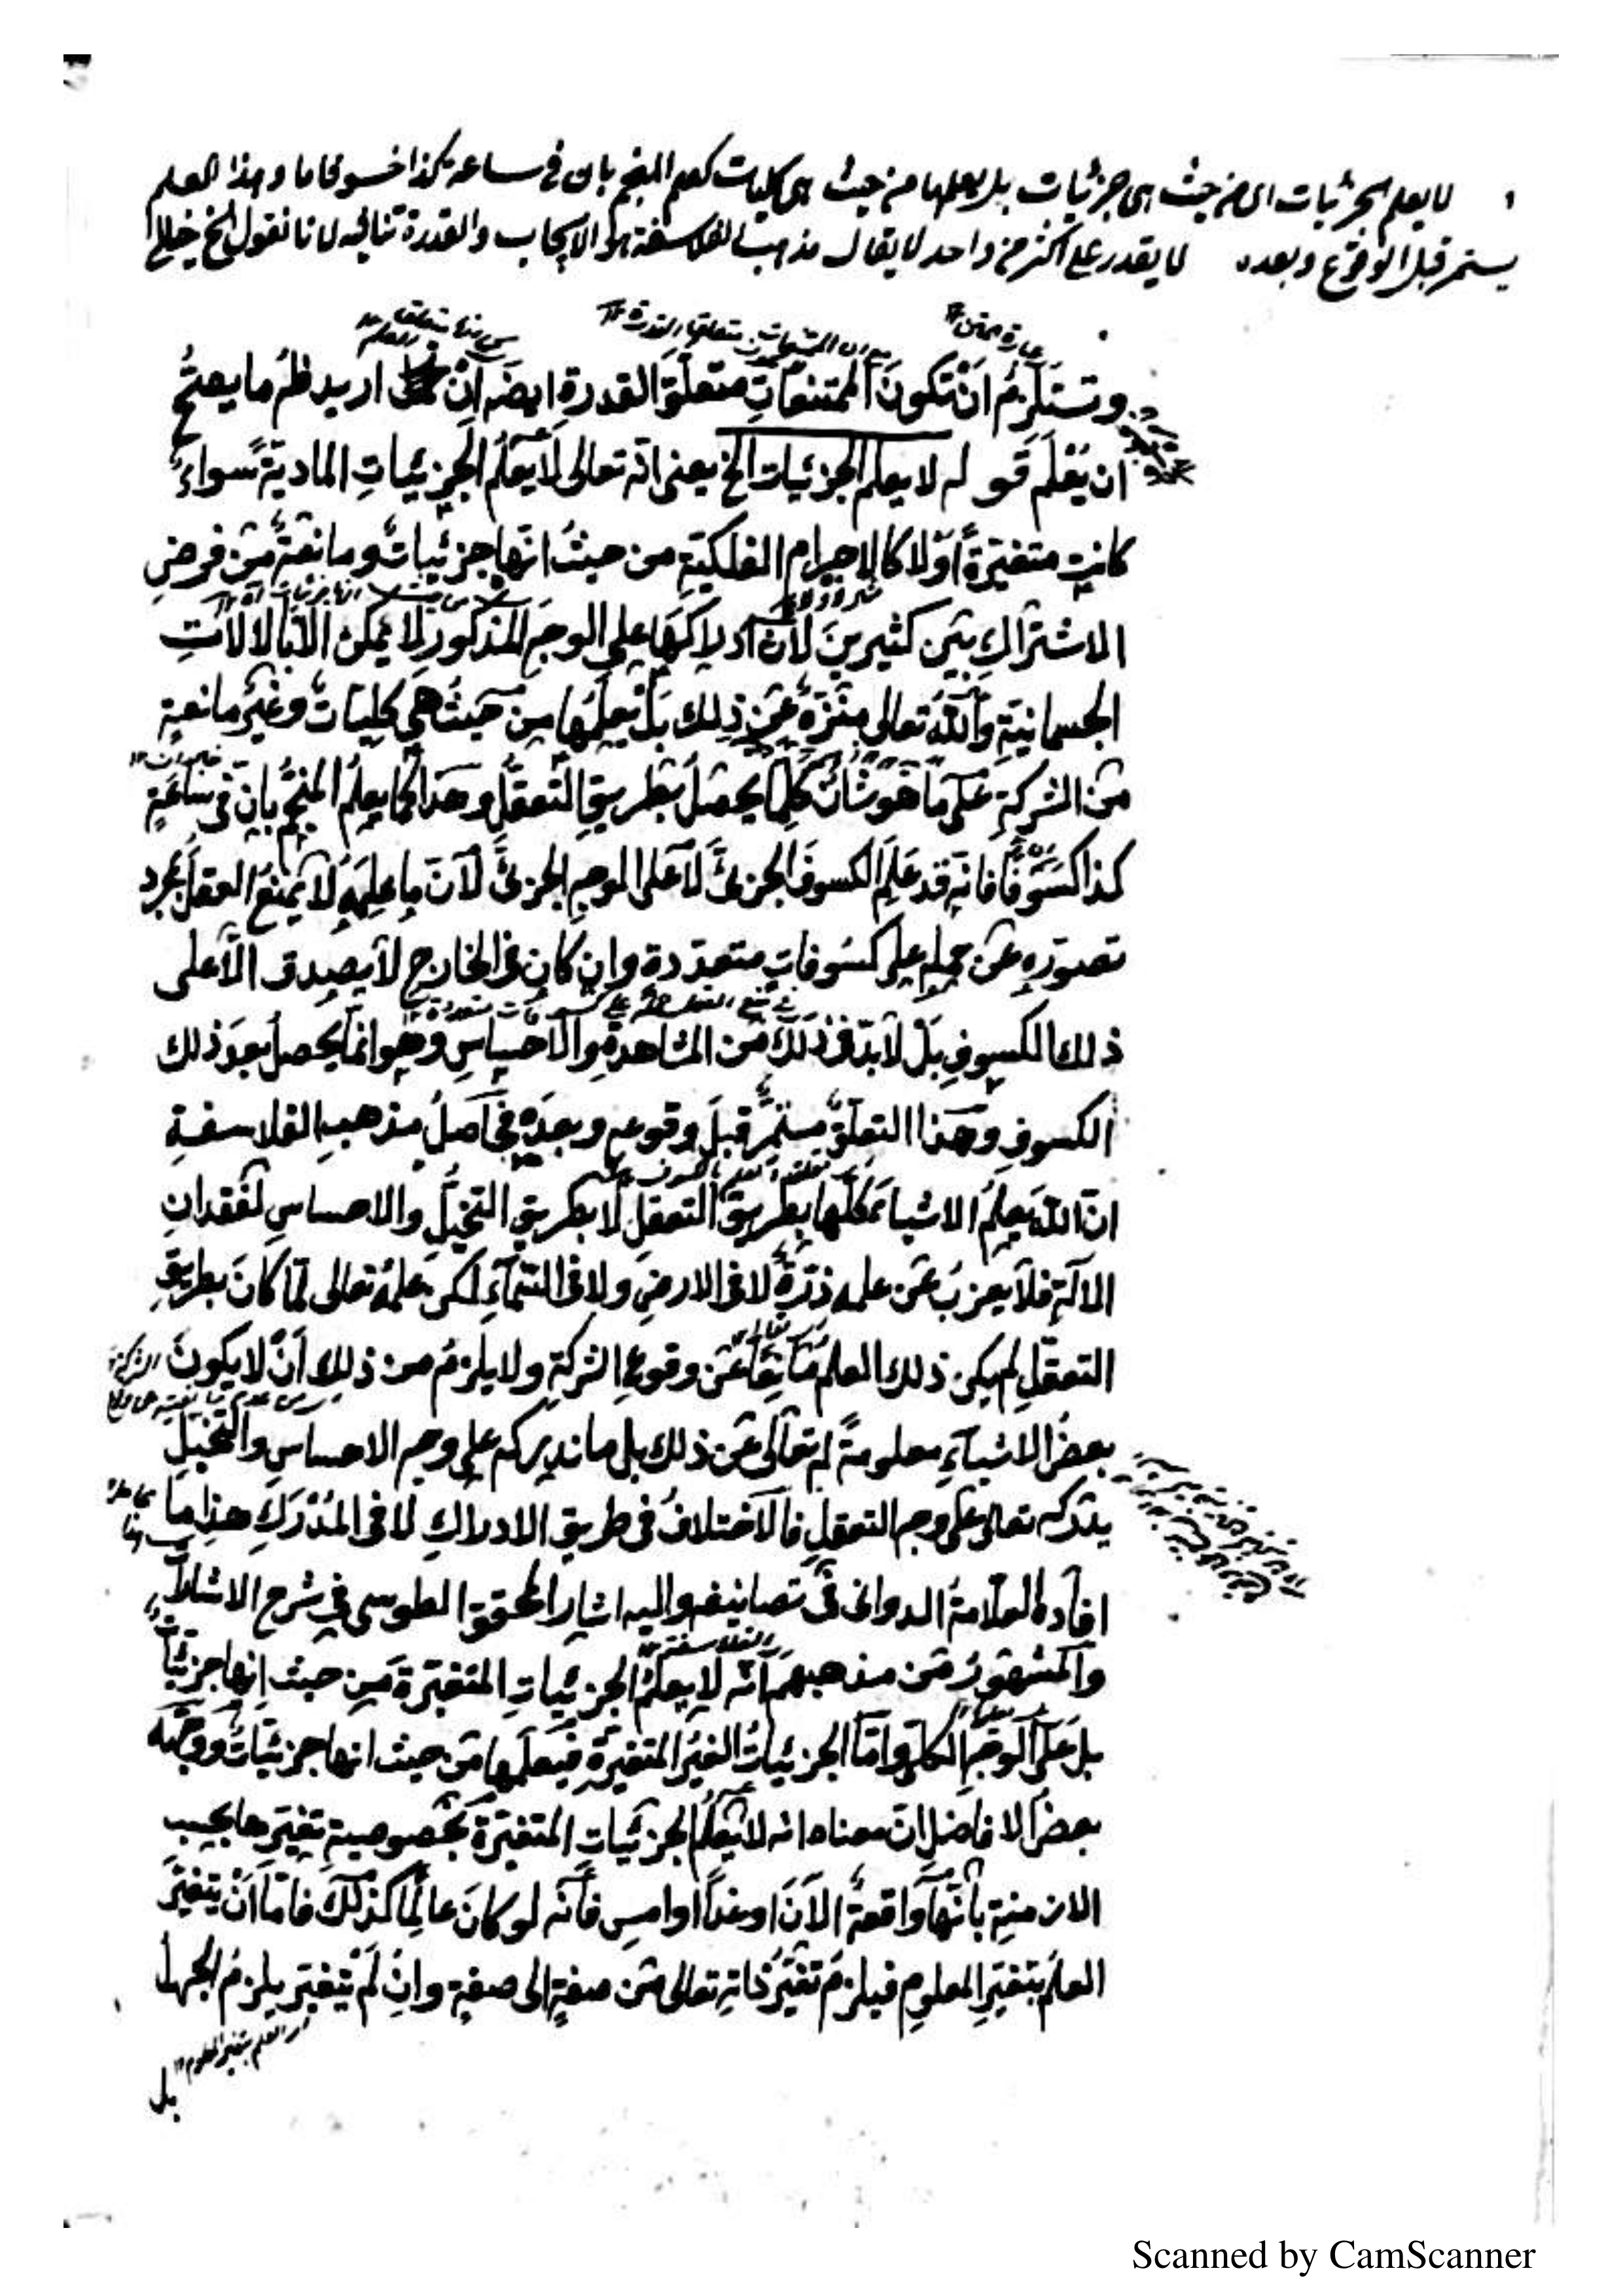 لا يعلم الجزئيات اى من حيث هى جزئيات بل يعلمها من حيث هى كليات كعلم المنجم بان فى ساعة كذا خسوفا ما وهذا العلم
يستمر قبل الوقوع وبعده لا يقدر على اكثر من واحد لا يقال مذهب الفلاسفة هو الايجاب والقدرة تنافيه لانا نقول الخ خيالى
وتستلزم ان تكون الممتنعات متعلق القدرة ايضه ان اريد ظلم ما يصح
ان يعلم قوله لا يعلم الجزئيات الخ يعنى انه تعالى لا يعلم الجزئيات المادية سواء
كانت متغيرة او لا كالاجرام الفلكية من حيث انها جزئيات ومانعة من فرض
الاشتراك بين كثيرين لان ادراكها على الوجه المذكور لا يمكن الا بالالات
الجسمانية والله تعالى منزه عن ذلك بل يعلمها من حيث هى كليات وغير مانعة
من الشركة على ما هو شان كل ما يحصل بطريق التعقل وهذا كما يعلم المنجم بان فى ساعة
كذا كسوفا فانه قد علم الكسوف الجزئى لا على الوجه الجزئى لان ما علمه لا يمنع العقل بمجرد
تصوره عن حمله على كسوفات متعددة وان كان فى الخارج لا يصدق الا على
ذلك الكسوف بل لا بد فى ذلك من المشاهدة والاحساس وهو انما يحصل بعد ذلك
الكسوف وهذا التعلق مستمر قبل وقوعه وبعده فحاصل مذهب الفلاسفة
ان الله يعلم الاشياء كلها بطريق التعقل لا بطريق التخيل والاحساس لفقدان
الالة فلا يعزب عن علمه ذرة لا فى الارض ولا فى السماء لكن علمه تعالى لما كان بطريق
التعقل لم يكن ذلك العلم مانعا عن وقوع الشركة ولا يلزم من ذلك ان لا يكون
بعض الاشياء معلومة له تعالى عن ذلك بل ما ندركه على وجه الاحساس والتخيل
يدركه تعالى على وجه التعقل فالاختلاف فى طريق الادراك لا فى المدرك هذا ما
افاده العلامة الدوانى فى تصانيفه واليه اشار المحقق الطوسى فى شرح الاشارات
والمشهور من مذهبهم انه لا يعلم الجزئيات المتغيرة من حيث انها جزئيات
بل على الوجه الكلى واما الجزئيات الغير المتغيرة فيعلمها من حيث انها جزئيات ووجهه
بعض الافاضل ان معناه انه لا يعلم الجزئيات المتغيرة بخصوصية تغيرها بحسب
الازمنة بانها واقعة الان او غدا او امس فانه لو كان عالما كذلك فاما ان يتغير
العلم بتغير المعلوم فيلزم تغير ذاته تعالى من صفة الى صفة وان لم يتغير يلزم الجهل
اى العلم بتغير المعلوم
بل
Scanned by CamScanner